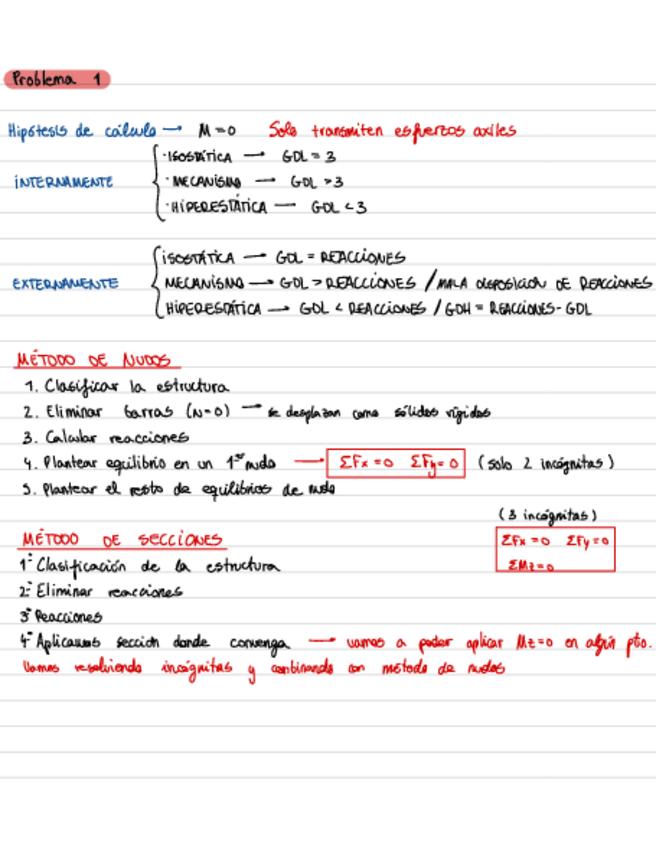 Problema 1
Hipótesis de cálculo → M=0 Solo transmiten esfuerzos axiles
INTERNAMENTE
· ISOSTÁTICA → GDL = 3
· MECANISMO → GDL > 3
· HIPERESTÁTICA — GDL < 3
EXTERNAMENTE
ISOSTÁTICA → GDL = REACCIONES
MECANISMO → GDL > REACCIONES / MALA DISPOSICIÓN DE REACCIONES
HIPERESTÁTICA → GDL < REACCIONES / GDH = REACCIONES - GDL
MÉTODO DE NUDOS
1. Clasificar la estructura
2. Eliminar barras (N=0) → se desplazan como sólidos rígidos
3. Calcular reacciones
4. Plantear equilibrio en un 1er nudo → ΣFx = 0 ΣFy = 0 (solo 2 incógnitas)
5. Plantear el resto de equilibrios de nudo
(3 incógnitas)
ΣFx = 0 ΣFy = 0
ΣMz = 0
MÉTODO DE SECCIONES
1º Clasificación de la estructura
2º Eliminar reacciones
3º Reacciones
4º Aplicamos sección donde convenga → vamos a poder aplicar Mz=0 en algún pto.
Vamos resolviendo incógnitas y combinando con método de nudos